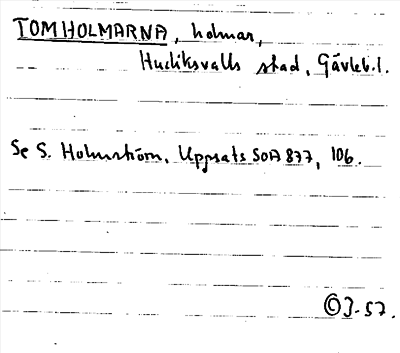 TOMHOLMARNA, holmar,
Hudiksvalls stad, Gävleb.l.
Se S. Holmström, Uppsats SOA 877, 106.
© J-57.